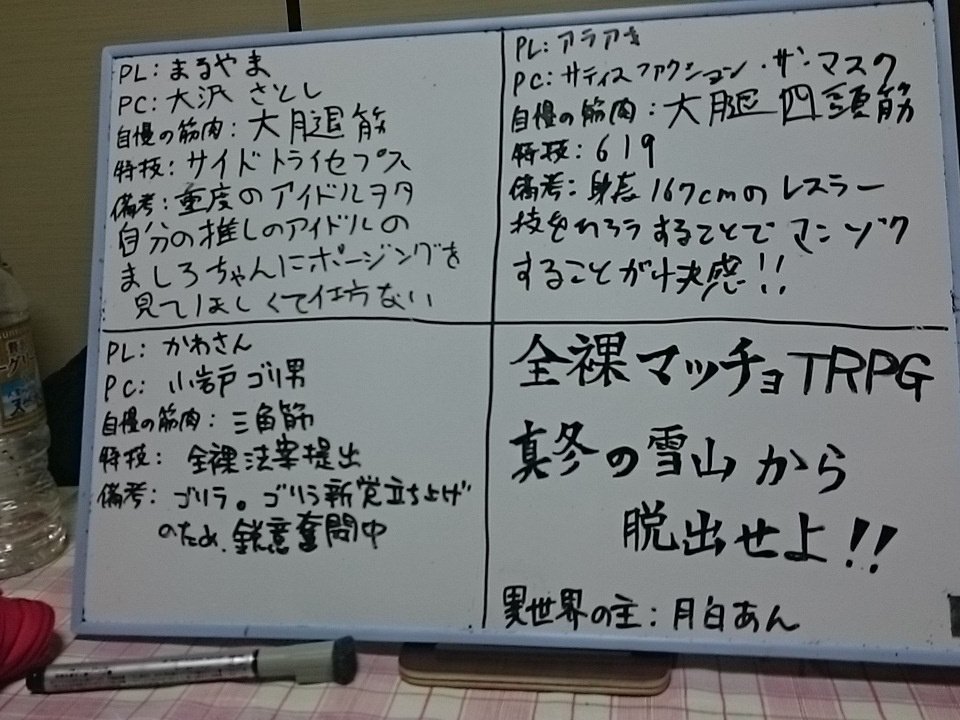 PL: まるやま
PC: 大沢 さとし
自慢の筋肉: 大腿筋
特技: サイドトライセプス
備考: 重度のアイドルヲタ
自分の推しのアイドルの
ましろちゃんにポージングを
見てほしくて仕方ない
PL: アラアキ
PC: サティスファクション・ザ・マスク
自慢の筋肉: 大腿四頭筋
特技: 619
備考: 身長167cmのレスラー
技をひろうすることでマンゾク
することが快感!!
PL: かわさん
PC: 小岩戸ゴリ男
自慢の筋肉: 三角筋
特技: 全裸法案提出
備考: ゴリラ。ゴリラ新党立ち上げ
のため、鋭意奮闘中
全裸マッチョTRPG
真冬の雪山から
脱出せよ!!
異世界の主: 月白あん